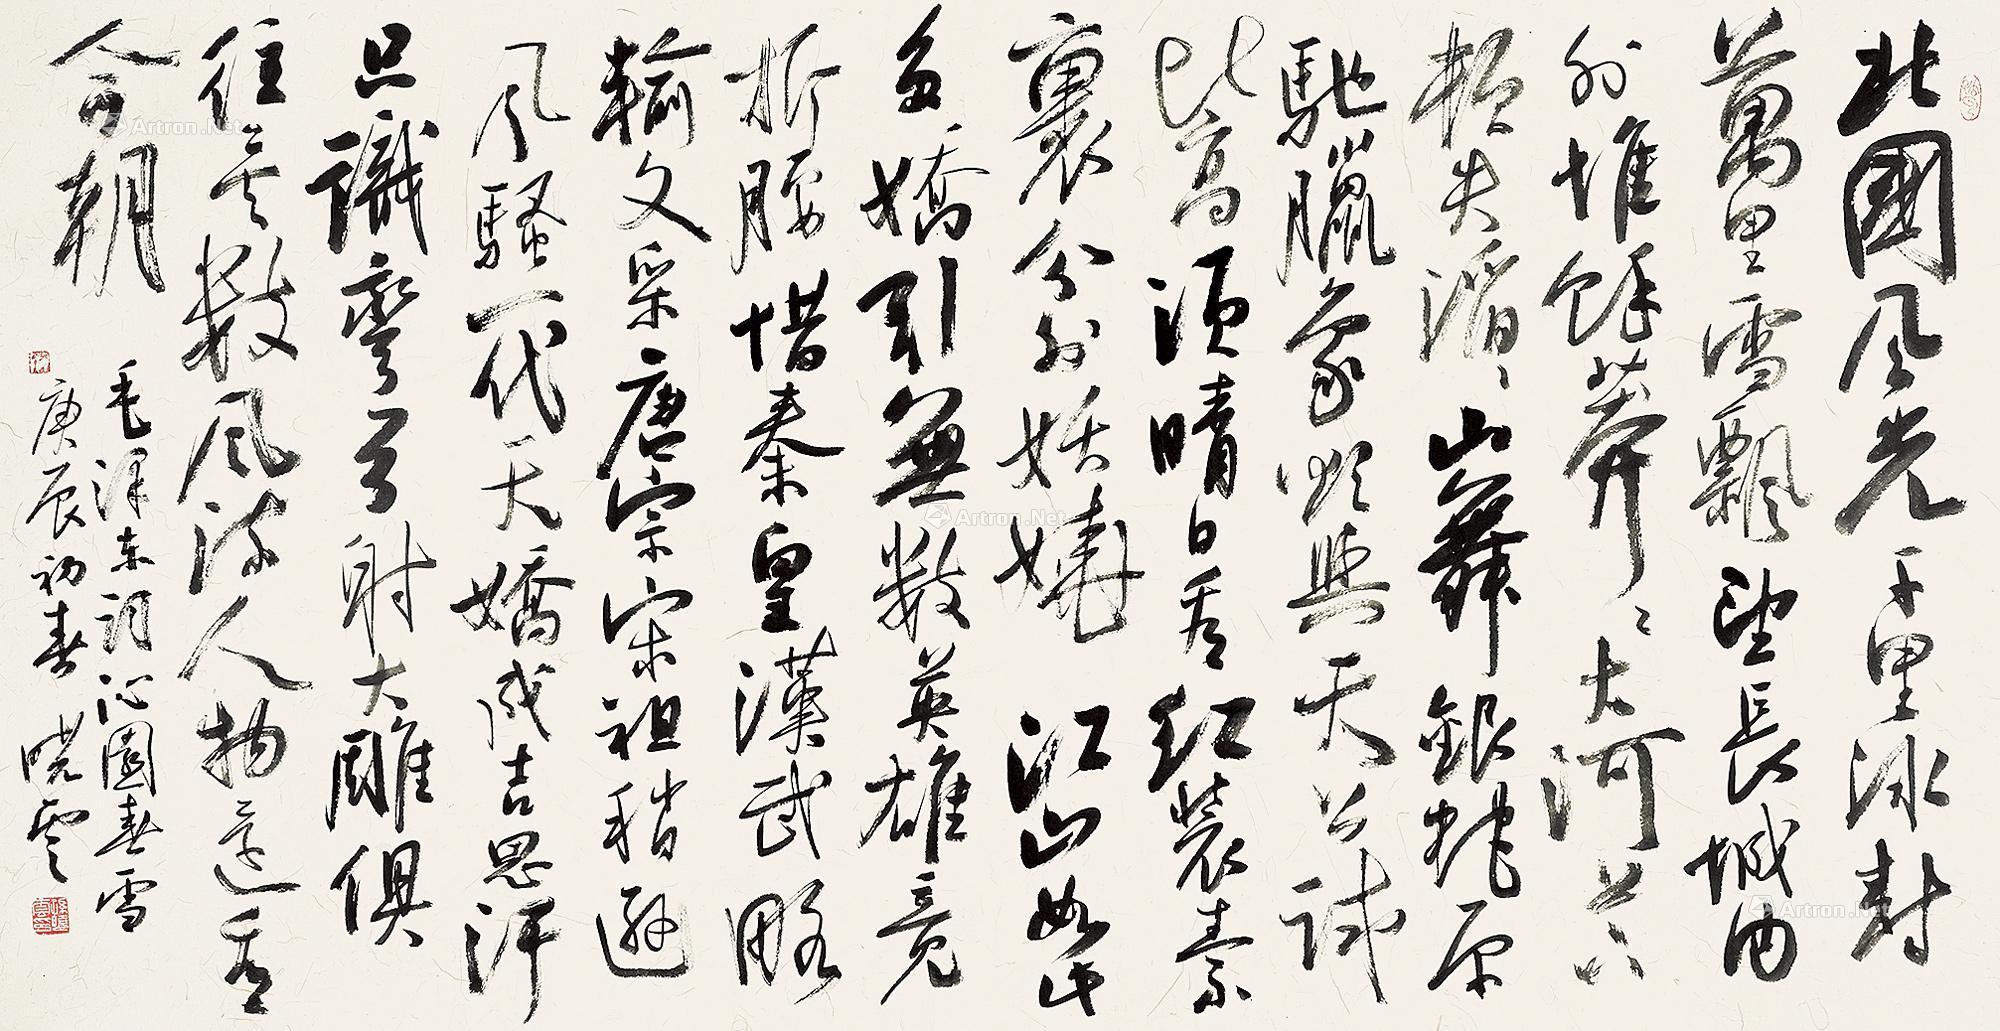 北國风光千里冰封
萬里雪飄望長城内
外惟餘莽〻大河上下
頓失滔〻山舞銀蛇原
馳臘象欲與天公試
比高須晴日看红裝素
裹分外妖嬈江山如此
多嬌引無數英雄竞
折腰惜秦皇漢武略
輸文采唐宗宋祖稍遜
风騷一代天嬌成吉思汗
只識彎弓射大雕俱
往矣數风流人物還看
今朝
毛泽东词沁園春雪
庚辰初春晓雲
Artron.Net
Artron.Net
Artron.Net